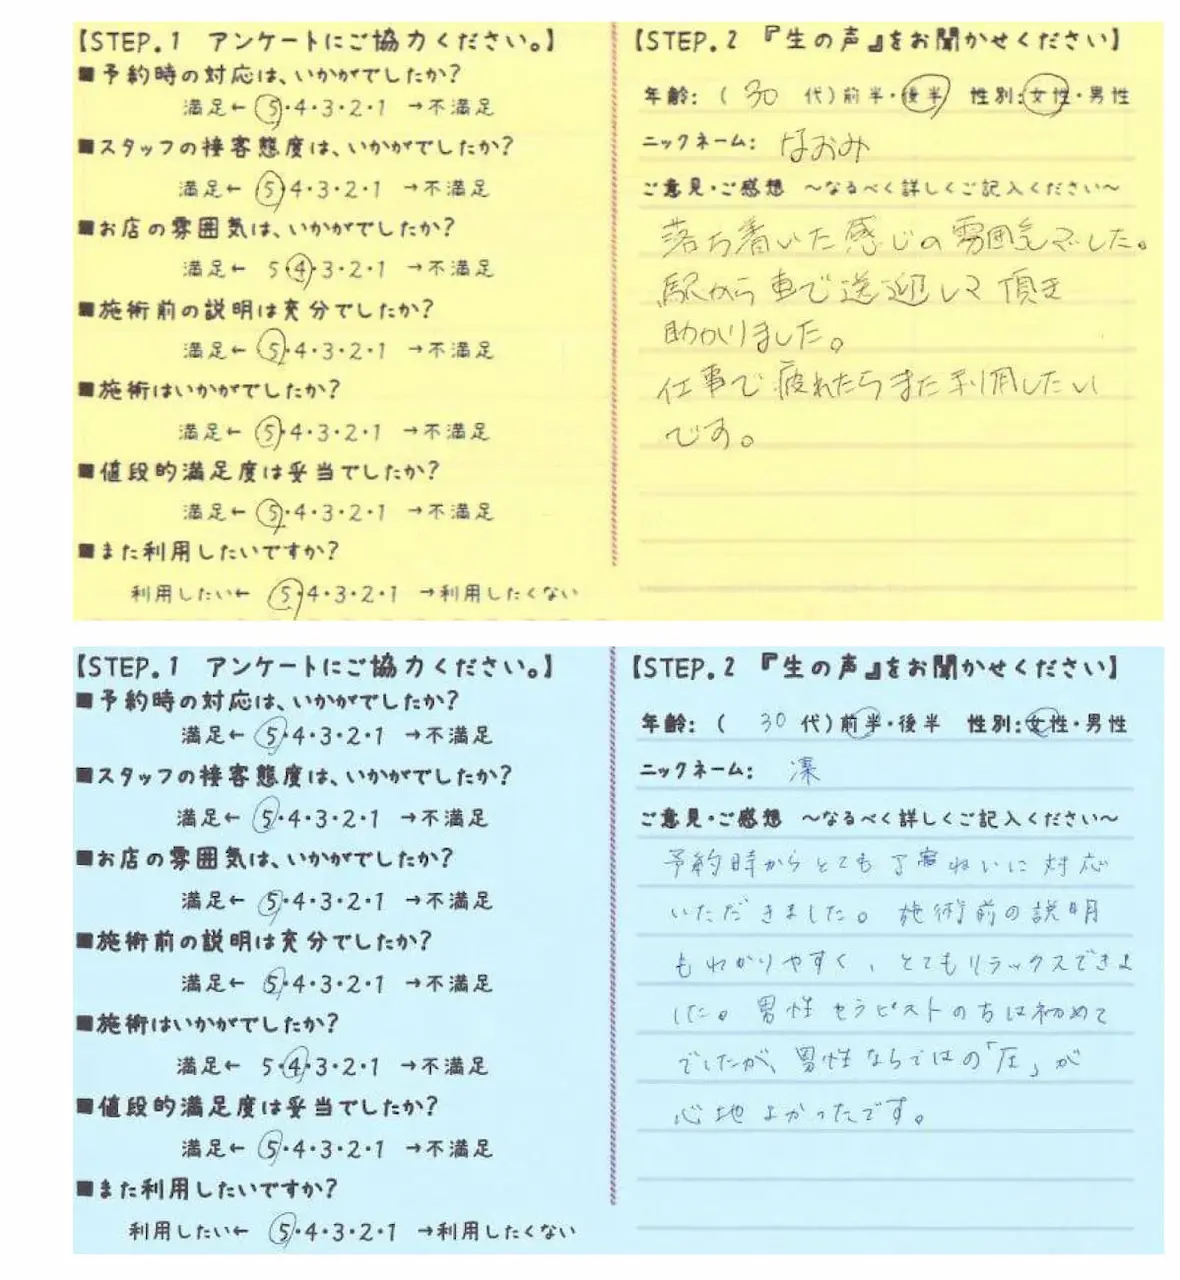 【STEP.1 アンケートにご協力ください。】
■予約時の対応は、いかがでしたか?
満足← 5・4・3・2・1 →不満足
■スタッフの接客態度は、いかがでしたか?
満足← 5・4・3・2・1 →不満足
■お店の雰囲気は、いかがでしたか?
満足← 5・4・3・2・1 →不満足
■施術前の説明は充分でしたか?
満足← 5・4・3・2・1 →不満足
■施術はいかがでしたか?
満足← 5・4・3・2・1 →不満足
■値段的満足度は妥当でしたか?
満足← 5・4・3・2・1 →不満足
■また利用したいですか?
利用したい← 5・4・3・2・1 →利用したくない
【STEP.2 『生の声』をお聞かせください】
年齢:( 30 代)前半・後半 性別:女性・男性
ニックネーム: なおみ
ご意見・ご感想 〜なるべく詳しくご記入ください〜
落ち着いた感じの雰囲気でした。
駅から車で送迎して頂き
助かりました。
仕事で疲れたらまた利用したい
です。
【STEP.1 アンケートにご協力ください。】
■予約時の対応は、いかがでしたか?
満足← 5・4・3・2・1 →不満足
■スタッフの接客態度は、いかがでしたか?
満足← 5・4・3・2・1 →不満足
■お店の雰囲気は、いかがでしたか?
満足← 5・4・3・2・1 →不満足
■施術前の説明は充分でしたか?
満足← 5・4・3・2・1 →不満足
■施術はいかがでしたか?
満足← 5・4・3・2・1 →不満足
■値段的満足度は妥当でしたか?
満足← 5・4・3・2・1 →不満足
■また利用したいですか?
利用したい← 5・4・3・2・1 →利用したくない
【STEP.2 『生の声』をお聞かせください】
年齢:( 30 代)前半・後半 性別:女性・男性
ニックネーム:
ご意見・ご感想 〜なるべく詳しくご記入ください〜
予約時からとても丁寧に対応
いただきました。施術前の説明
もわかりやすく、とてもリラックスできま
した。男性セラピストの方は初めて
でしたが、男性ならではの「圧」が
心地よかったです。